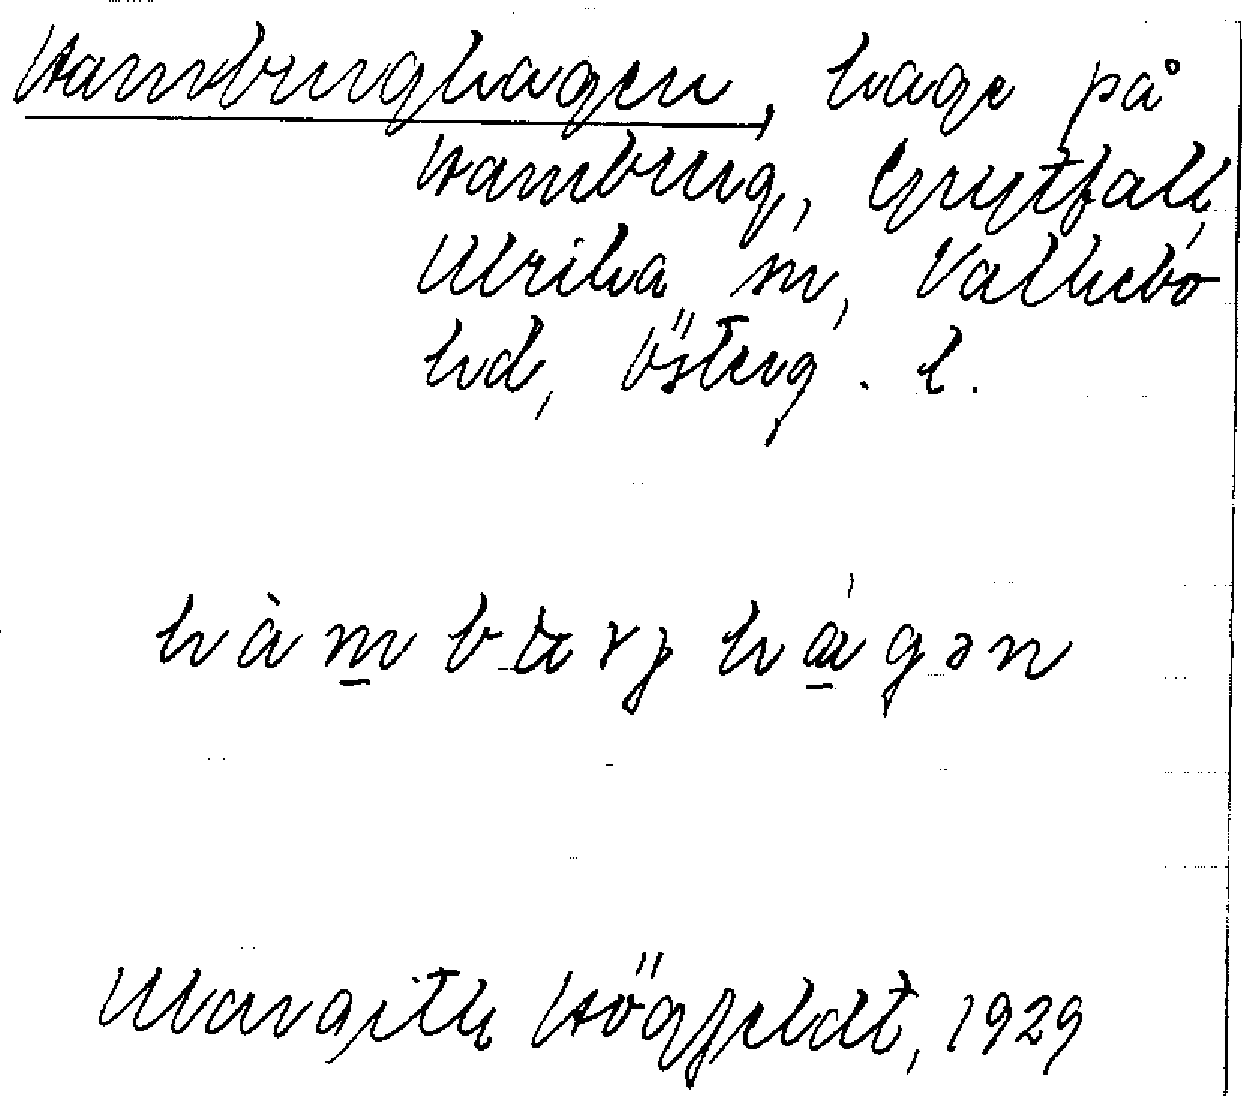 Hamburghagen, hage på
Hamburg, Grytfall,
Ulrika sn, Valkebo
hd, Österg. l.
hàmbʉrjhágən
Margith Högfeldt, 1929